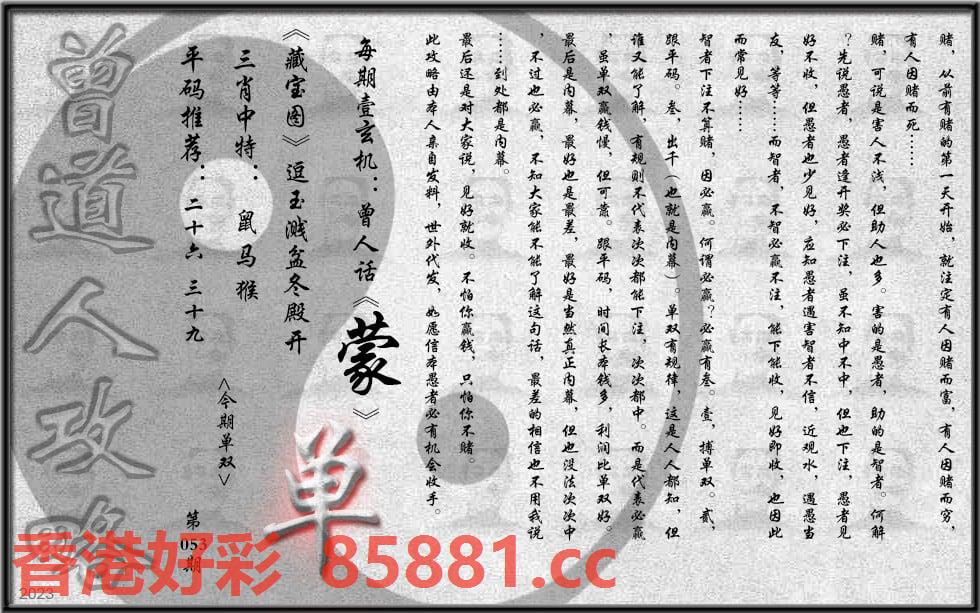 赌，从前有赌的第一天开始，就注定有人因赌而富，有人因赌而穷，
有人因赌而死……
赌，可说是害人不浅，但助人也多。害的是愚者，助的是智者。何解
？先说愚者，愚者逢开奖必下注，虽不知中不中，但也下注，愚者见
好不收，但愚者也少见好，应知愚者遇害智者不信，近观水，遇愚当
友，等等……而智者，不智必赢不注，能下能收，见好即收，也因此
而常见好……
智者下注不算赌，因必赢。何谓必赢？必赢有叁。壹，搏单双。贰，
跟平码。叁，出千（也就是内幕）。单双有规律，这是人人都知，但
谁又能了解，有规则不代表次次都能下注，次次都中。而是代表必赢
，虽单双赢钱慢，但可靠。跟平码，时间长本钱多，利润比单双好。
最后是内幕，最好也是最差，最好是当然真正内幕，但也没法次次中
，不过也必赢，不知大家能不能了解这句话，最差的相信也不用我说
……到处都是内幕。
最后还是对大家说，见好就收。不怕你赢钱，只怕你不赌。
此攻略由本人亲自发料，世外代发，如愿信本愚者必有机会收手。
每期壹玄机：曾人话《蒙》
《藏宝图》逗玉溅盆冬殿开
单
三肖中特：鼠马猴
<今期单双>
平码推荐：二十六 三十九
第
053
期
曾道人攻略
香港好彩 85881.cc
2023